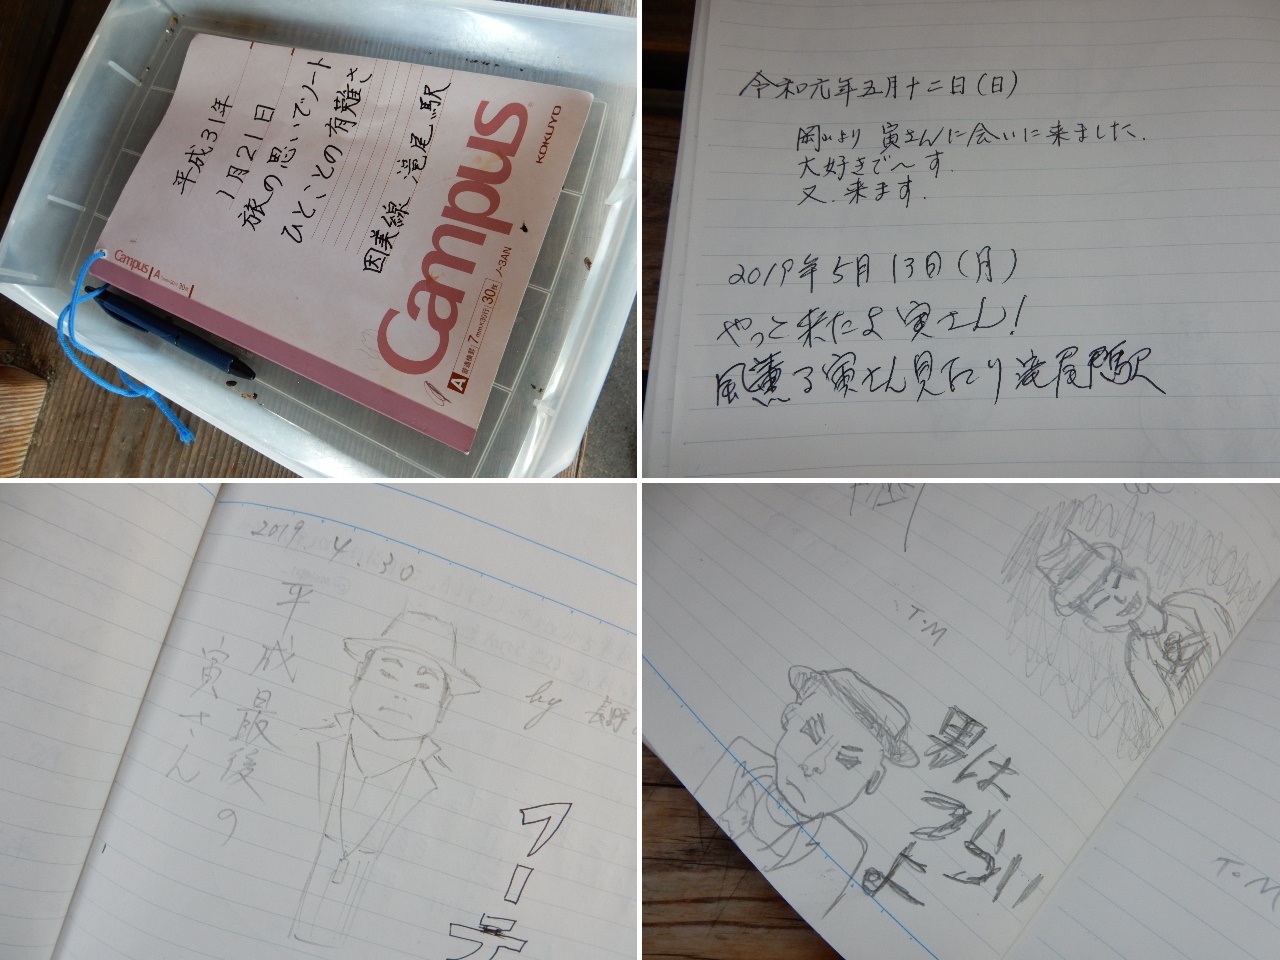 平成31年
1月21日
旅の思いでノート
ひとことの有難さ
因美線 滝尾駅
Campus
KOKUYO
ノ-3AN
A 普通横罫 7mm×30行 30枚
Campus A
令和元年五月十二日(日)
岡山より 寅さんに会いに来ました.
大好きで〜す.
又.来ます.
2019年5月13日(月)
やっと来たよ寅さん!
風薫る寅さん見たり滝尾駅
2019.4.30
平成最後の
寅さん
by 長野
フーテ
T.M
男は
つらい
よ
T.M